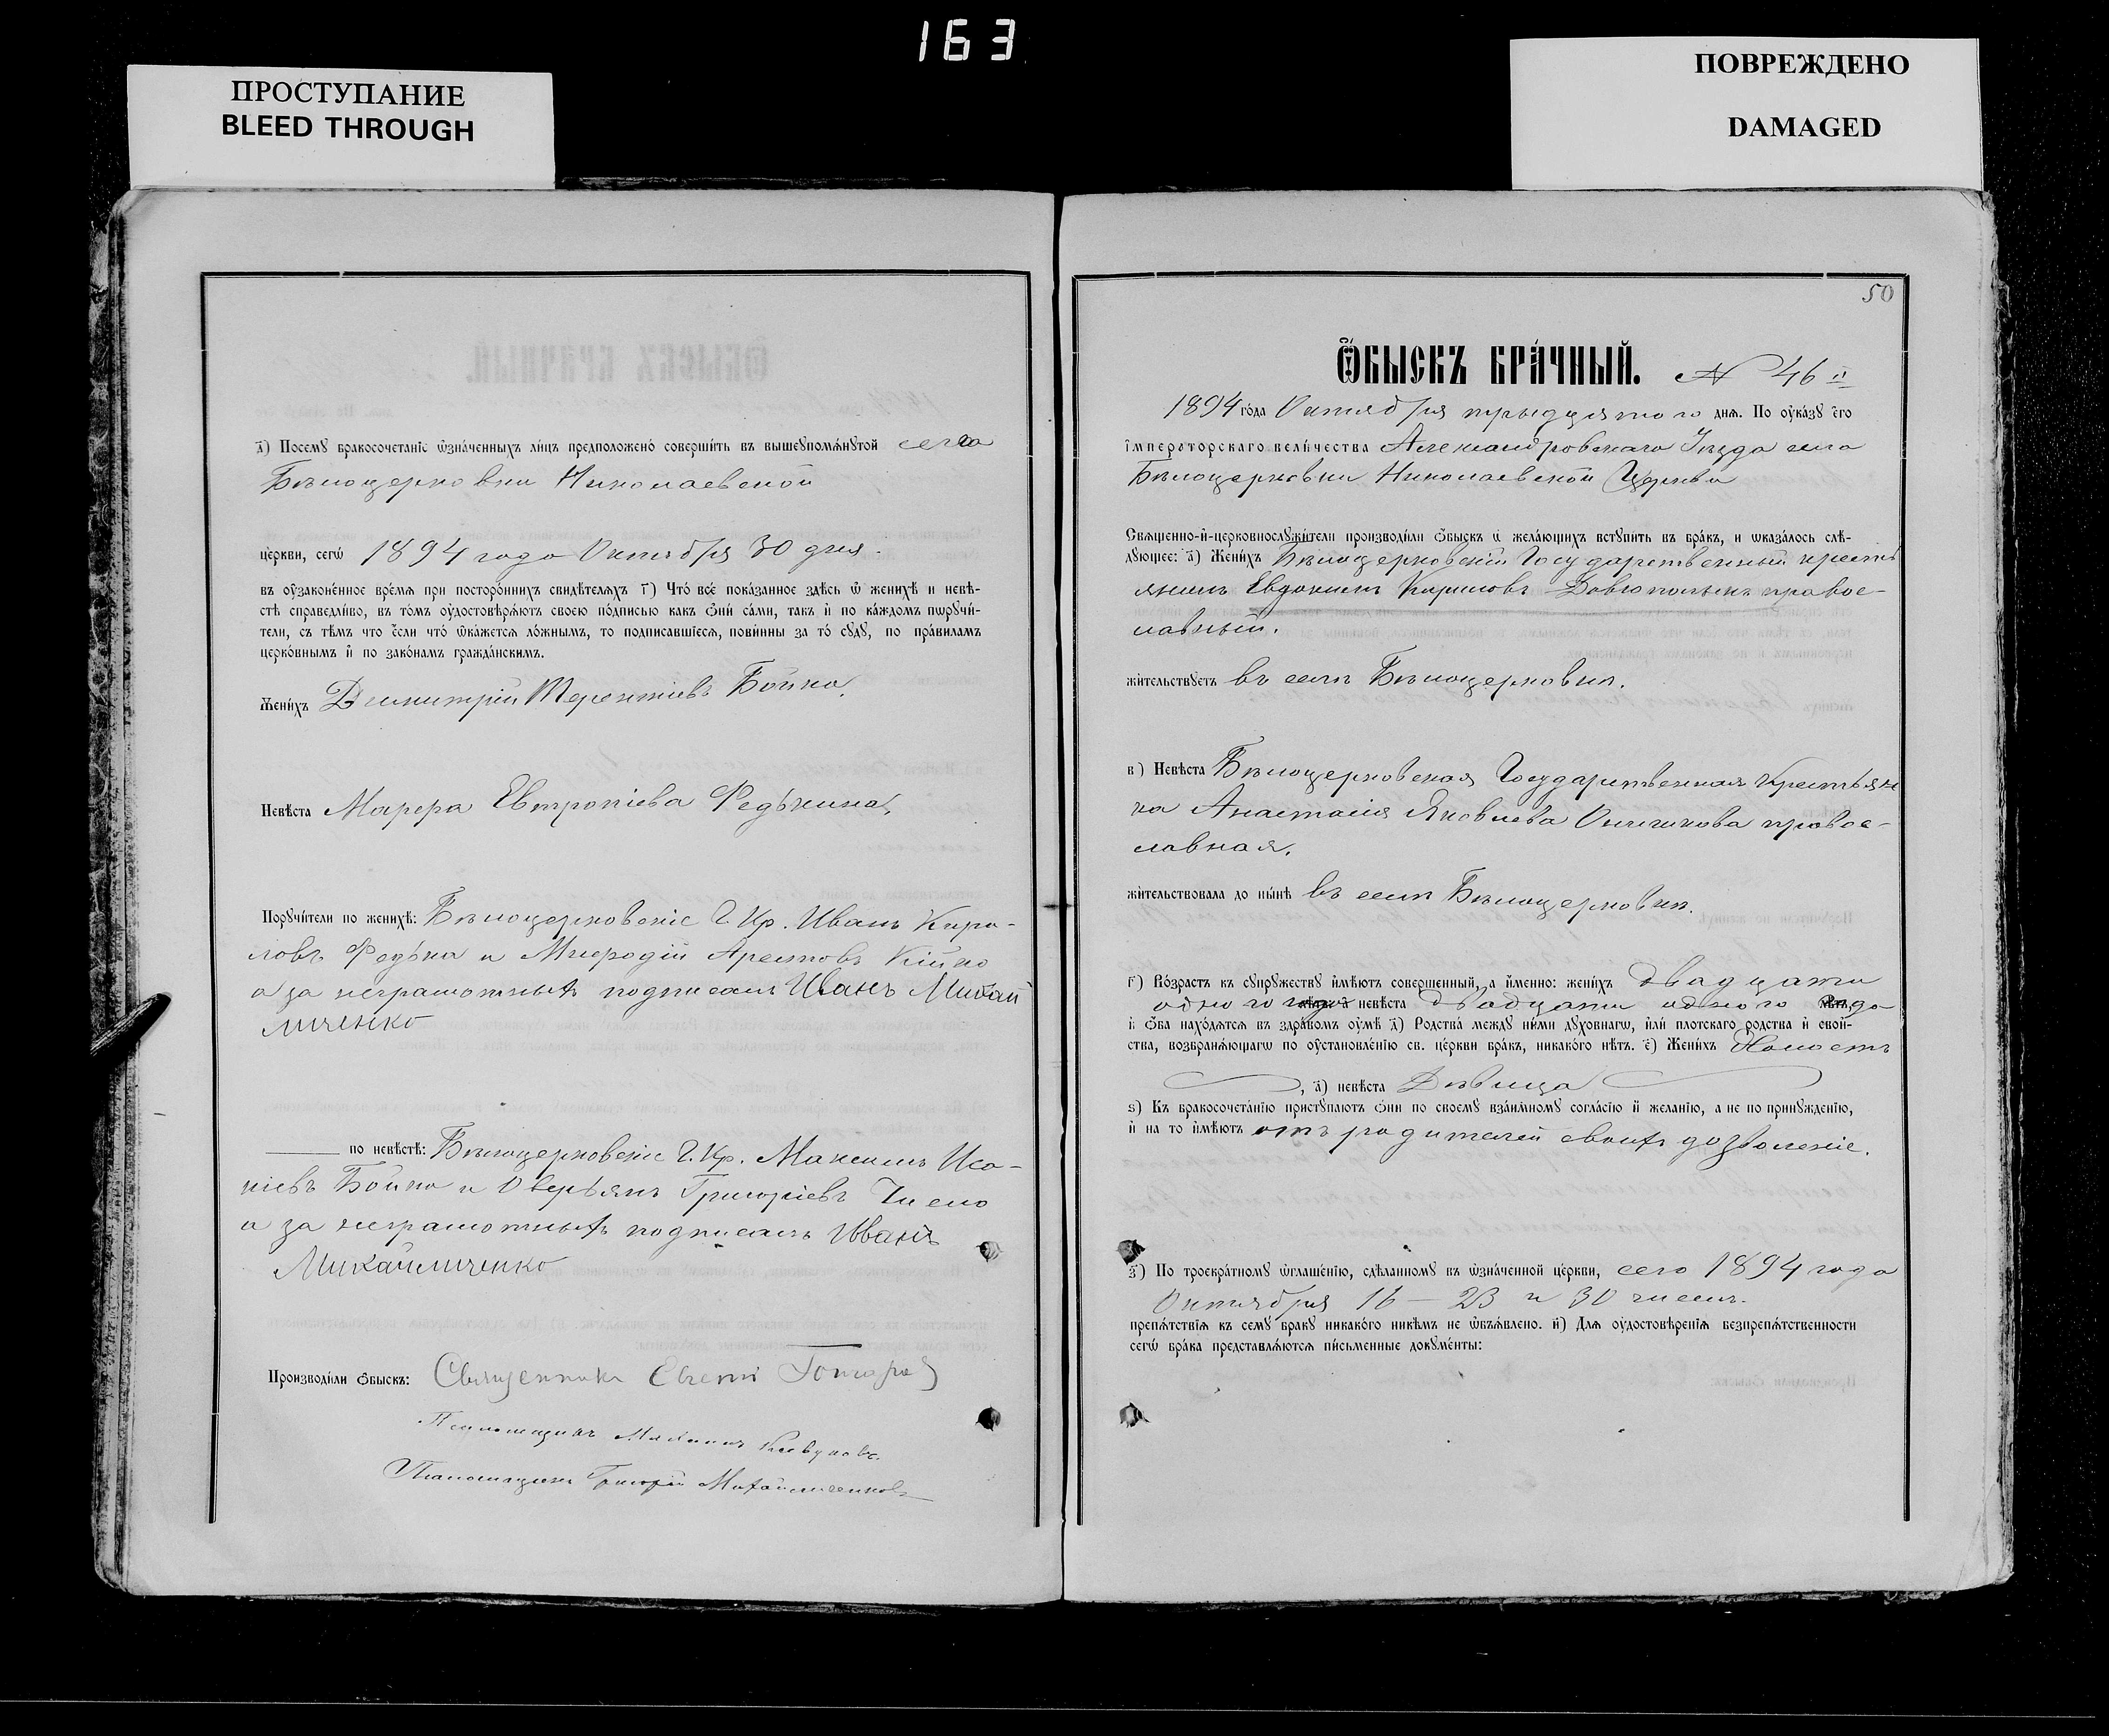 163
ПРОСТУПАНИЕ
BLEED THROUGH
ПОВРЕЖДЕНО
DAMAGED
д҃) Посемꙋ бракосочетанїе ѡзна́ченныхъ ли́цъ предположено́ соверши́ть въ вышеꙋпомѧ́нꙋтой села
Бѣлоцерковки Николаевской
це́ркви, сегѡ̀ 1894 года Октября 30 дня.
въ ᲂу҆зако́ненное вре́мѧ при посторо́ннихъ свидѣтелѧхъ г҃) Что́ все́ пока́занное здѣсь ѡ҆ женихѣ и невѣ-
стѣ справедли́во, въ то́мъ ᲂу҆достовѣрѧ́ютъ своею по́дписью какъ ѻ҆ни́ са́ми, такъ и҆ по ка́ждомъ пѡрꙋчи́-
тели, съ тѣмъ что е҆сли что́ ѡ҆ка́жетсѧ ло́жнымъ, то подписавшїесѧ, пови́нны за то́ сꙋдꙋ̀, по пра́виламъ
церко́внымъ и҆ по зако́намъ гражда́нскимъ.
Жени́хъ Димитрій Терентіевъ Бойко.
Невѣ́ста Марѳра Евтропіева Федькина.
Порꙋчи́тели по женихѣ̀: Бѣлоцерковскіе Г. Кр. Иванъ Кири-
ловъ Федька и Меѳодій Арестовъ Кійко
а за неграмотныхъ подписалъ Иванъ Михай
личенко
по невѣ́стѣ: Бѣлоцерковскіе Г. Кр. Максимъ Иса-
кіевъ Бойко и Оверьянъ Григоріевъ
а за неграмотныхъ подписалъ Иванъ
Михайличенко
Производи́ли ѻ҆быскъ: Священникъ Евгеній
Псаломщикъ
Псаломщикъ Григорій Михайличенковъ
50
Ѻ҆БЫСКЪ БРА́ЧНЫЙ. № 46й
1894 го́да Октября тридцятого днѧ̀. По ᲂу҆ка́зꙋ є҆гѡ̀
і҆мператорскаго вели́чества Александровскаго Уѣзда села
Бѣлоцерковки Николаевской Церкви
Свѧще́нно-и҆-церковнослꙋжи́тели производи́ли ѻ҆быскъ ѡ҆ жела́ющихъ встꙋпи́ть въ бра́къ, и ѡказа́лось слѣ́-
дꙋющее: а҃) Жени́хъ Бѣлоцерковскій Государственный кресть
янинъ Евдокимъ Кириловъ Довгополикъ правос-
лавный.
жи́тельствꙋетъ въ селѣ Бѣлоцерковкѣ.
в҃) Невѣ́ста Бѣлоцерковская Государственная Крестьян
ка Анастасія Яковлева Онищикова правос-
славная.
жи́тельствовала до ны́нѣ въ селѣ Бѣлоцерковкѣ.
г҃) Во́зрастъ къ сꙋпрꙋжествꙋ и҆мѣ́ютъ соверше́нный, а и҆́менно: жени́хъ двадцати
одного невѣ́ста двадцати одного года
и҆ ѻ҆́ба нахо́дѧтсѧ въ здра́вомъ ᲂу҆мѣ̀ д҃) Родства̀ междꙋ ни́ми дꙋховнагѡ, и҆ли́ плотскаго родства и҆ свой-
ства, возбранѧ́ющагѡ по ᲂу҆становле́нїю св. це́ркви бра́къ, никако́го нѣ́тъ. е҃) Жени́хъ Холостъ
, а҃) невѣ́ста Дѣвица
ѕ҃) Къ бракосочета́нїю пристꙋпаютъ ѻ҆ни по своемꙋ вза́имномꙋ согла́сїю и҆ жела́нїю, а не по принꙋжденїю,
и҆ на то и҆мѣ́ютъ отъ родителей своихъ дозволеніе.
з҃) По троекра́тномꙋ ѡ҆глаше́нїю, сдѣланномꙋ въ ѡ҆зна́ченной це́ркви, сего 1894 года
Октября 16 — 23 и 30 чиселъ.
препѧ́тствїѧ къ семꙋ бракꙋ никако́го никѣмъ не ѡ҆бъѧ́влено. и҃) Длѧ ᲂу҆достовѣ́ренїѧ безпрепѧ́тственности
сегѡ̀ бра́ка представлѧ́ютсѧ пи́сьменные докꙋме́нты: